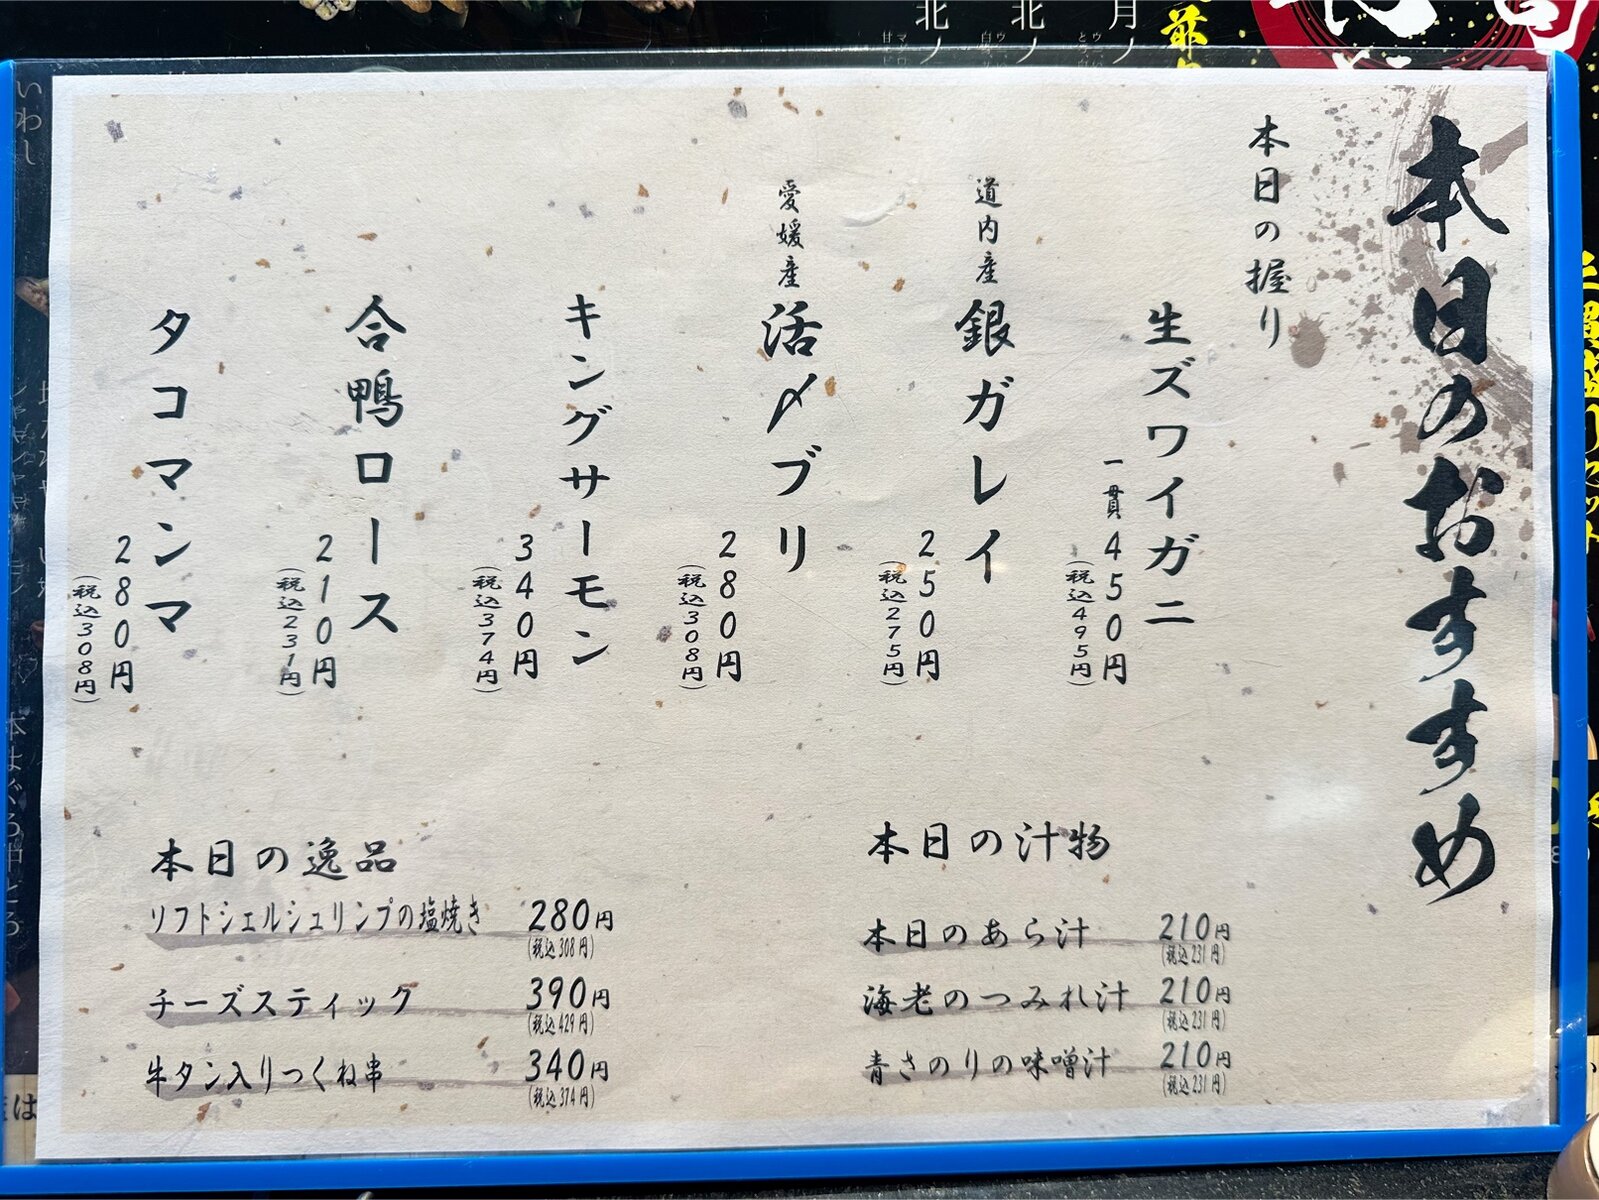 本日のおすすめ
本日の握り
生ズワイガニ
一貫450円
(税込495円)
道内産 銀ガレイ
250円
(税込275円)
愛媛産 活〆ブリ
280円
(税込308円)
キングサーモン
340円
(税込374円)
合鴨ロース
210円
(税込231円)
タコマンマ
280円
(税込308円)
本日の汁物
本日のあら汁 210円
(税込231円)
海老のつみれ汁 210円
(税込231円)
青さのりの味噌汁 210円
(税込231円)
本日の逸品
ソフトシェルシュリンプの塩焼き 280円
(税込308円)
チーズスティック 390円
(税込429円)
牛タン入りつくね串 340円
(税込374円)
いわし